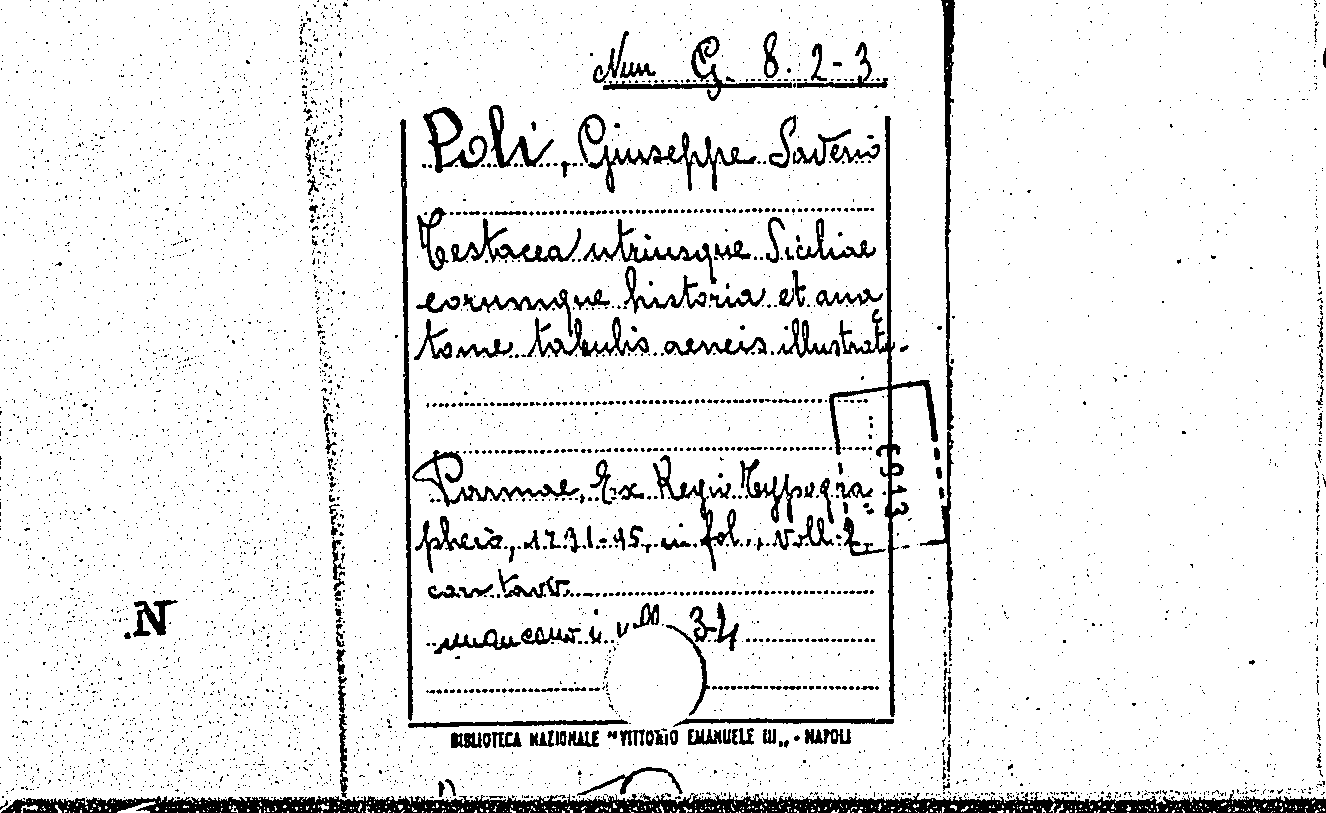 Nun G. 8. 2-3
Poli, Giuseppe Saverio
Testacea utriusque Siciliae
eorumque historia et ana
tome tabulis aeneis illustrata.
Parmae, Ex Regio Typogra=
pheio, 1791-95, in fol., voll. 2
con tavv.
mancano i voll 3-4
BIBLIOTECA NAZIONALE "VITTORIO EMANUELE III„ - NAPOLI
.N